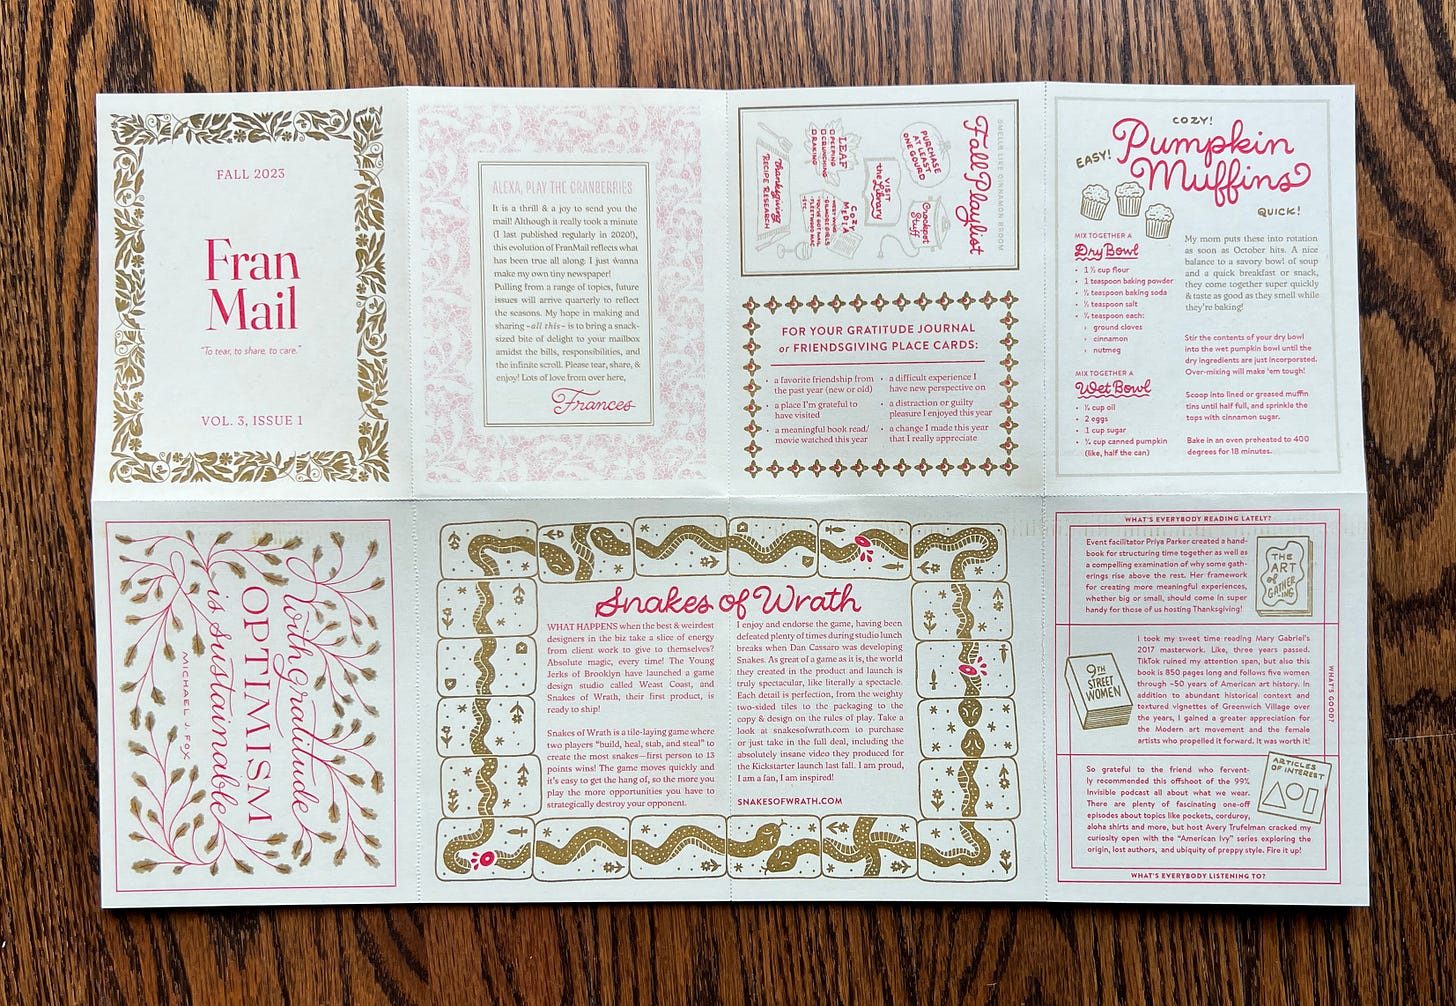 FALL 2023
Fran
Mail
"To tear, to share, to care."
VOL. 3, ISSUE 1
ALEXA, PLAY THE CRANBERRIES
It is a thrill & a joy to send you the
mail! Although it really took a minute
(I last published regularly in 2020!),
this evolution of FranMail reflects what
has been true all along: I just wanna
make my own tiny newspaper!
Pulling from a range of topics, future
issues will arrive quarterly to reflect
the seasons. My hope in making and
sharing ~all this~ is to bring a snack-
sized bite of delight to your mailbox
amidst the bills, responsibilities, and
the infinite scroll. Please tear, share, &
enjoy! Lots of love from over here,
Frances
SMELLS LIKE CINNAMON BROOM
Fall Playlist
PURCHASE
AT LEAST
ONE GOURD
Crockpot
Stuff
VISIT
the Library
LEAF
PEEPING
CRUNCHING
RAKING
COZY
MEDIA
WEST WING
GILMORE GIRLS
YOU'VE GOT MAIL
FLEETWOOD MAC
ETC.
Thanksgiving
RECIPE RESEARCH
FOR YOUR GRATITUDE JOURNAL
or FRIENDSGIVING PLACE CARDS:
• a favorite friendship from
the past year (new or old)
• a place I'm grateful to
have visited
• a meaningful book read/
movie watched this year
• a difficult experience I
have new perspective on
• a distraction or guilty
pleasure I enjoyed this year
• a change I made this year
that I really appreciate
COZY!
EASY!
Pumpkin
Muffins
QUICK!
MIX TOGETHER A
Dry Bowl
• 1 ½ cup flour
• 1 teaspoon baking powder
• ½ teaspoon baking soda
• ½ teaspoon salt
• ½ teaspoon each:
› ground cloves
› cinnamon
› nutmeg
MIX TOGETHER A
Wet Bowl
• ½ cup oil
• 2 eggs
• 1 cup sugar
• ¾ cup canned pumpkin
(like, half the can)
My mom puts these into rotation
as soon as October hits. A nice
balance to a savory bowl of soup
and a quick breakfast or snack,
they come together super quickly
& taste as good as they smell while
they're baking!
Stir the contents of your dry bowl
into the wet pumpkin bowl until the
dry ingredients are just incorporated.
Over-mixing will make 'em tough!
Scoop into lined or greased muffin
tins until half full, and sprinkle the
tops with cinnamon sugar.
Bake in an oven preheated to 400
degrees for 18 minutes.
with Gratitude
OPTIMISM
is sustainable
MICHAEL J. FOX
Snakes of Wrath
WHAT HAPPENS when the best & weirdest
designers in the biz take a slice of energy
from client work to give to themselves?
Absolute magic, every time! The Young
Jerks of Brooklyn have launched a game
design studio called Weast Coast, and
Snakes of Wrath, their first product, is
ready to ship!
Snakes of Wrath is a tile-laying game where
two players "build, heal, stab, and steal" to
create the most snakes—first person to 13
points wins! The game moves quickly and
it's easy to get the hang of, so the more you
play the more opportunities you have to
strategically destroy your opponent.
I enjoy and endorse the game, having been
defeated plenty of times during studio lunch
breaks when Dan Cassaro was developing
Snakes. As great of a game as it is, the world
they created in the product and launch is
truly spectacular, like literally a spectacle.
Each detail is perfection, from the weighty
two-sided tiles to the packaging to the
copy & design on the rules of play. Take a
look at snakesofwrath.com to purchase
or just take in the full deal, including the
absolutely insane video they produced for
the Kickstarter launch last fall. I am proud,
I am a fan, I am inspired!
SNAKESOFWRATH.COM
WHAT'S EVERYBODY READING LATELY?
Event facilitator Priya Parker created a hand-
book for structuring time together as well as
a compelling examination of why some gath-
erings rise above the rest. Her framework
for creating more meaningful experiences,
whether big or small, should come in super
handy for those of us hosting Thanksgiving!
THE
ART
of
GATHER
ING
I took my sweet time reading Mary Gabriel's
2017 masterwork. Like, three years passed.
TikTok ruined my attention span, but also this
book is 850 pages long and follows five women
through ~50 years of American art history. In
addition to abundant historical context and
textured vignettes of Greenwich Village over
the years, I gained a greater appreciation for
the Modern art movement and the female
artists who propelled it forward. It was worth it!
9TH
STREET
WOMEN
WHAT'S GOOD?
So grateful to the friend who fervent-
ly recommended this offshoot of the 99%
Invisible podcast all about what we wear.
There are plenty of fascinating one-off
episodes about topics like pockets, corduroy,
aloha shirts and more, but host Avery Trufelman cracked my
curiosity open with the "American Ivy" series exploring the
origin, lost authors, and ubiquity of preppy style. Fire it up!
ARTICLES
OF INTEREST
WHAT'S EVERYBODY LISTENING TO?